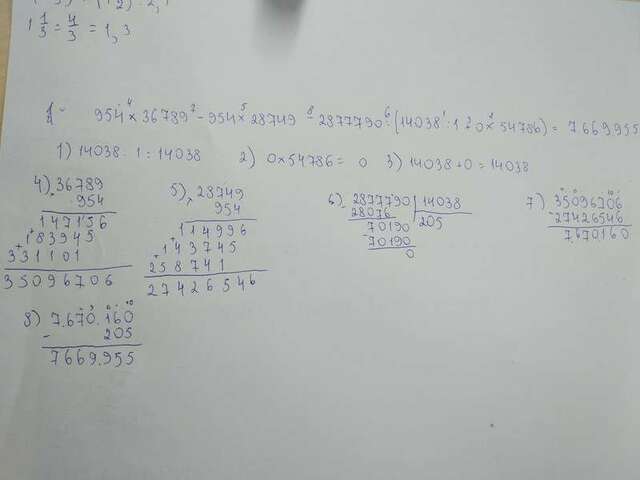 1 1/3 = 4/3 = 1,3
954 × 36789 - 954 × 28749 - 2877790 : (14038 : 1 + 0 × 54786) = 7669955
1) 14038 : 1 = 14038 2) 0 × 54786 = 0 3) 14038 + 0 = 14038
4) 36789
× 954
147156
183945
331101
35096706
5) 28749
× 954
114996
143745
258741
27426546
6) 2877790 | 14038
28076 205
70190
- 70190
0
7) 35096706
- 27426546
7670160
8) 7.670.160
- 205
7669.955